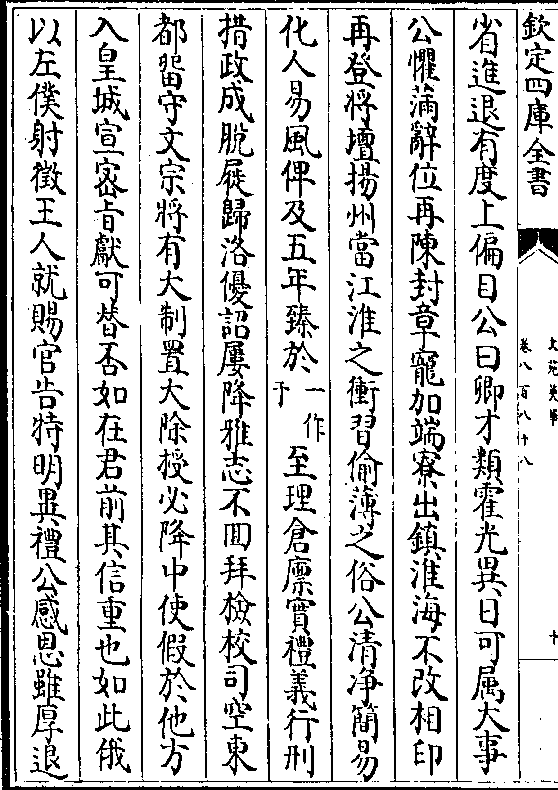 欽定四庫全書
文苑英華
卷八百八十八
十
省進退有度上偏目公曰卿才類霍光異日可属大事
公懼滿辭位再陳封章寵加端寮出鎮淮海不改相印
再登將壇揚州當江淮之衝習偷薄之俗公清净簡易
化人易風俾及五年臻於一作于至理倉廪實禮義行刑
措政成脱屣歸洛優詔屢降雅志不回拜檢校司空東
都留守文宗將有大制置大除授必降中使假於他方
入皇城宣宻㫖獻可替否如在君前其信重也如此俄
以左僕射徵王人就賜官告特明異禮公感恩雖厚退